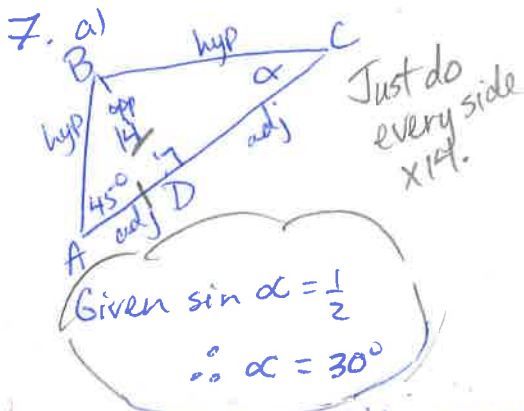 7. a)
B
hyp
C
α
hyp
opp
14
adj
45°
D
adj
A
Just do
every side
x14.
Given sin α = 1/2
∴ α = 30°